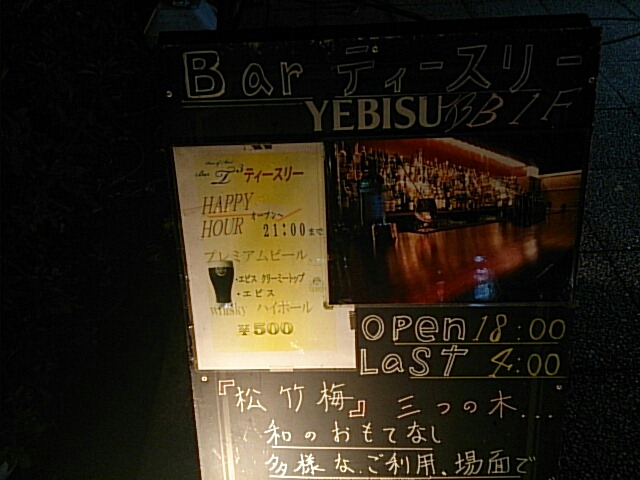 Bar ティースリー
YEBISU B1F
Bar T3 ティースリー
HAPPY
HOUR オープン〜
21:00まで
プレミアムビール
・エビス クリーミートップ
・エビス
whisky ハイボール
¥500
OPEN 18:00
LaST 4:00
『松竹梅』三つの木...
和のおもてなし
多様な、ご利用、場面で